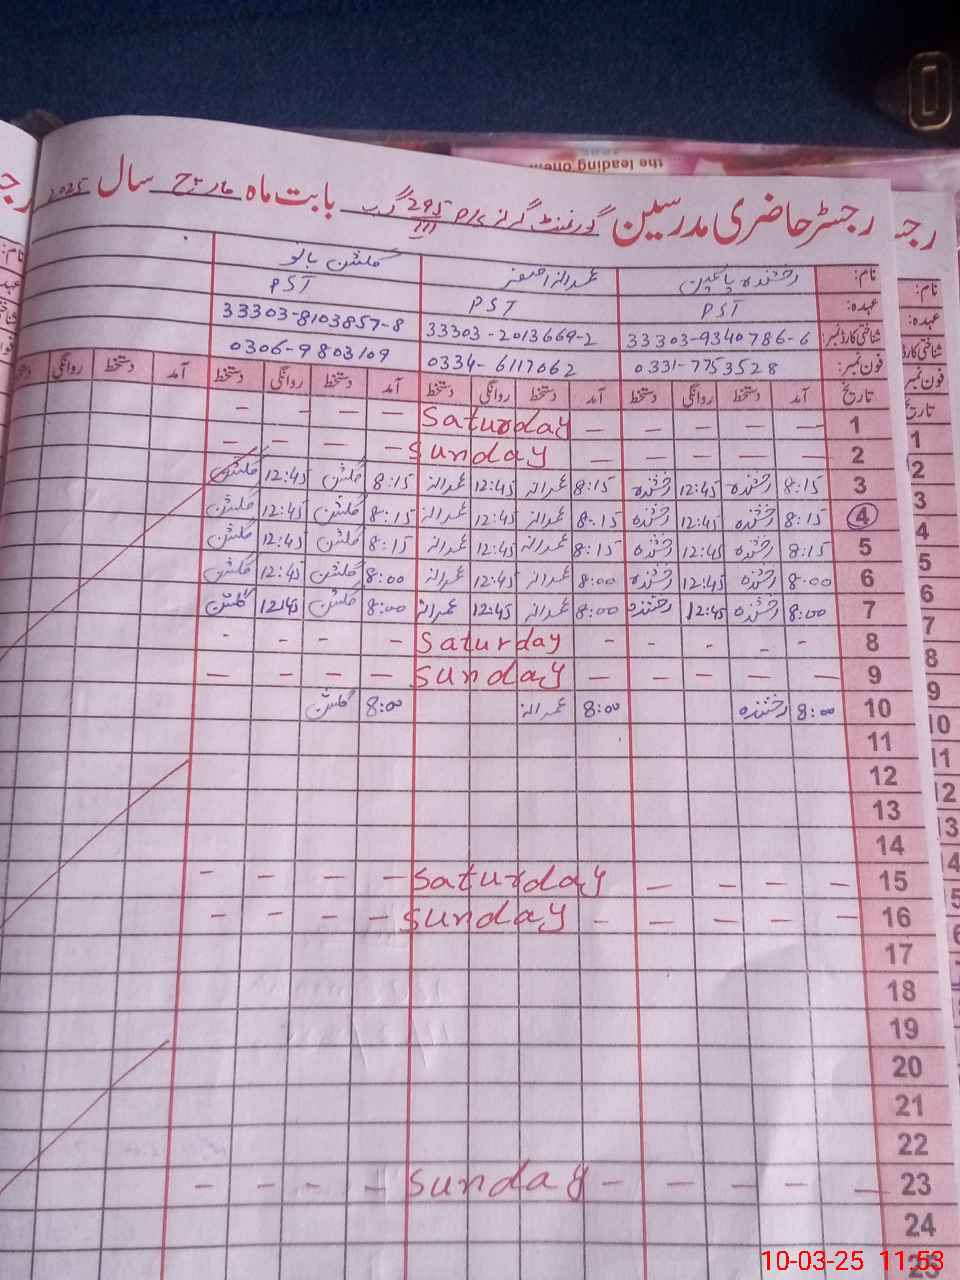 the leading one...
رجسٹر حاضری مدرسین گورنمنٹ گرلز P/S 295 گ ب بابت ماہ مارچ سال 2025
III
نام: رخشندہ یاسمین گلشن بانو
عہدہ: PST PST PST
شناختی کارڈ نمبر: 33303-9340786-6 33303-2013669-2 33303-8103857-8
فون نمبر: 0331-7753528 0334-6117062 0306-9803109
تاریخ آمد دستخط روانگی دستخط آمد دستخط روانگی دستخط آمد دستخط روانگی دستخط آمد دستخط روانگی دستخط
1 — — — — Saturday — — — —
2 — — — — Sunday — — — —
3 8:15 رخشندہ 12:45 رخشندہ 8:15 12:45 8:15 گلشن 12:45 گلشن
4 8:15 رخشندہ 12:45 رخشندہ 8:15 12:45 8:15 گلشن 12:45 گلشن
5 8:15 رخشندہ 12:45 رخشندہ 8:15 12:45 8:15 گلشن 12:45 گلشن
6 8:00 رخشندہ 12:45 رخشندہ 8:00 12:45 8:00 گلشن 12:45 گلشن
7 8:00 رخشندہ 12:45 رخشندہ 8:00 12:45 8:00 گلشن 12:45 گلشن
8 - - - - Saturday - - - -
9 — — — — Sunday — — — —
10 8:00 رخشندہ 8:00 8:00 گلشن
11
12
13
14
15 — — — — Saturday — — — —
16 — — — — Sunday — — — —
17
18
19
20
21
22
23 — — — — Sunday — — — —
24
25
10-03-25 11:53